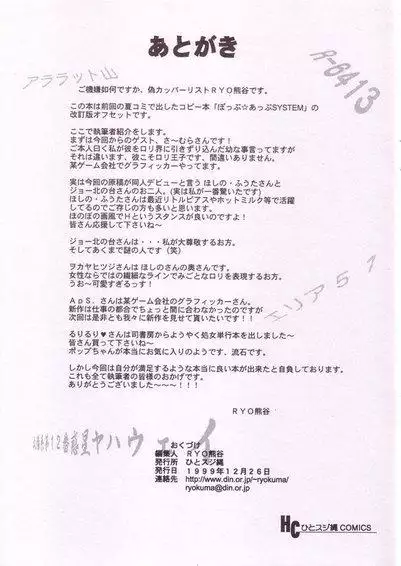 あとがき
アララット山
R-6413
ご機嫌如何ですか、偽カッパーリストＲＹＯ熊谷です。
この本は前回の夏コミで出したコピー本「ぽっぷ☆あっぷSYSTEM」の
改訂版オフセットです。
ここで執筆者紹介をします。
まずは今回からのゲスト、さ～むらさんです！
ご本人曰く私が彼をロリ界に引きずり込んだ幼な事言ってますが
それは違います、彼こそロリ王子です、間違いありません。
某ゲーム会社でグラフィッカーやってます。
実は今回の原稿が同人デビューと言う ほしの・ふうたさんと
ジョー北の台さんのお二人。(実は私が一番驚いていた)
ほしの・ふうたさんは最近リトルピアスやホットミルク等で活躍
してるのでご存じの方も多いと思います。
ほのぼの画風でＨというスタンスが良いのですよ！
皆さん応援して下さいね～
ジョー北の台さんは・・・私が大尊敬するお方。
そしてあくまで謎の人です（笑）
ヲカヤヒツジさんは ほしのさんの奥さんです。
女性ならではの繊細なラインでみごとなロリを表現するお方。
うお～可愛すぎるっす！
エリア５１
ＡｐＳ．さんは某ゲーム会社のグラフィッカーさん。
新作は仕事の都合でちょっと間に合わなかったのですが
次回は是非とも我々に新作を見せて貰いたいです！！
るりるり♥さんは司書房からようやく処女単行本を出しました～
皆さん買って下さいね～
ポップちゃんが本当にお気に入りのようです、流石です。
しかし今回は自分が満足するような本当に良い本が出来たと自負しております。
これも全て執筆者の皆様のおかげです。
ありがとうございました～～～！！！
ＲＹＯ熊谷
第12番惑星ヤハウェイ
おくづけ
編集人　ＲＹＯ熊谷
発行所　ひとスジ縄
発行日　１９９９年１２月２６日
連絡先　http://www.din.or.jp/~ryokuma/
ryokuma@din.or.jp
HC ひとスジ縄 COMICS